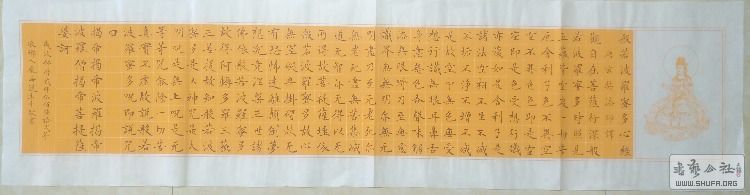 般若波羅蜜多心經
唐玄奘法師譯
觀自在菩薩行深般
若波羅蜜多時照見
五蘊皆空度一切苦
厄舍利子色不異空
空不異色色即是空
空即是色受想行識
亦復如是舍利子是
諸法空相不生不滅
不垢不淨不增不減
是故空中无色无受
想行識无眼耳鼻舌
身意无色聲香味觸
法无眼界乃至无意
識界无无明亦无无
明盡乃至无老死亦
无老死盡无苦集滅
道无智亦无得以无
所得故菩提薩埵依
般若波羅蜜多故心
无罣礙无罣礙故无
有恐怖遠離顛倒夢
想究竟涅槃三世諸
佛依般若波羅蜜多
故得阿耨多羅三藐
三菩提故知般若波
羅蜜多是大神咒是大
明咒是无上咒是无
等等咒能除一切苦
真實不虛故說般若
波羅蜜多咒即說咒
曰
揭帝揭帝波羅揭帝
波羅僧揭帝菩提薩
婆訶
书法公社
WWW.SHUFA.ORG